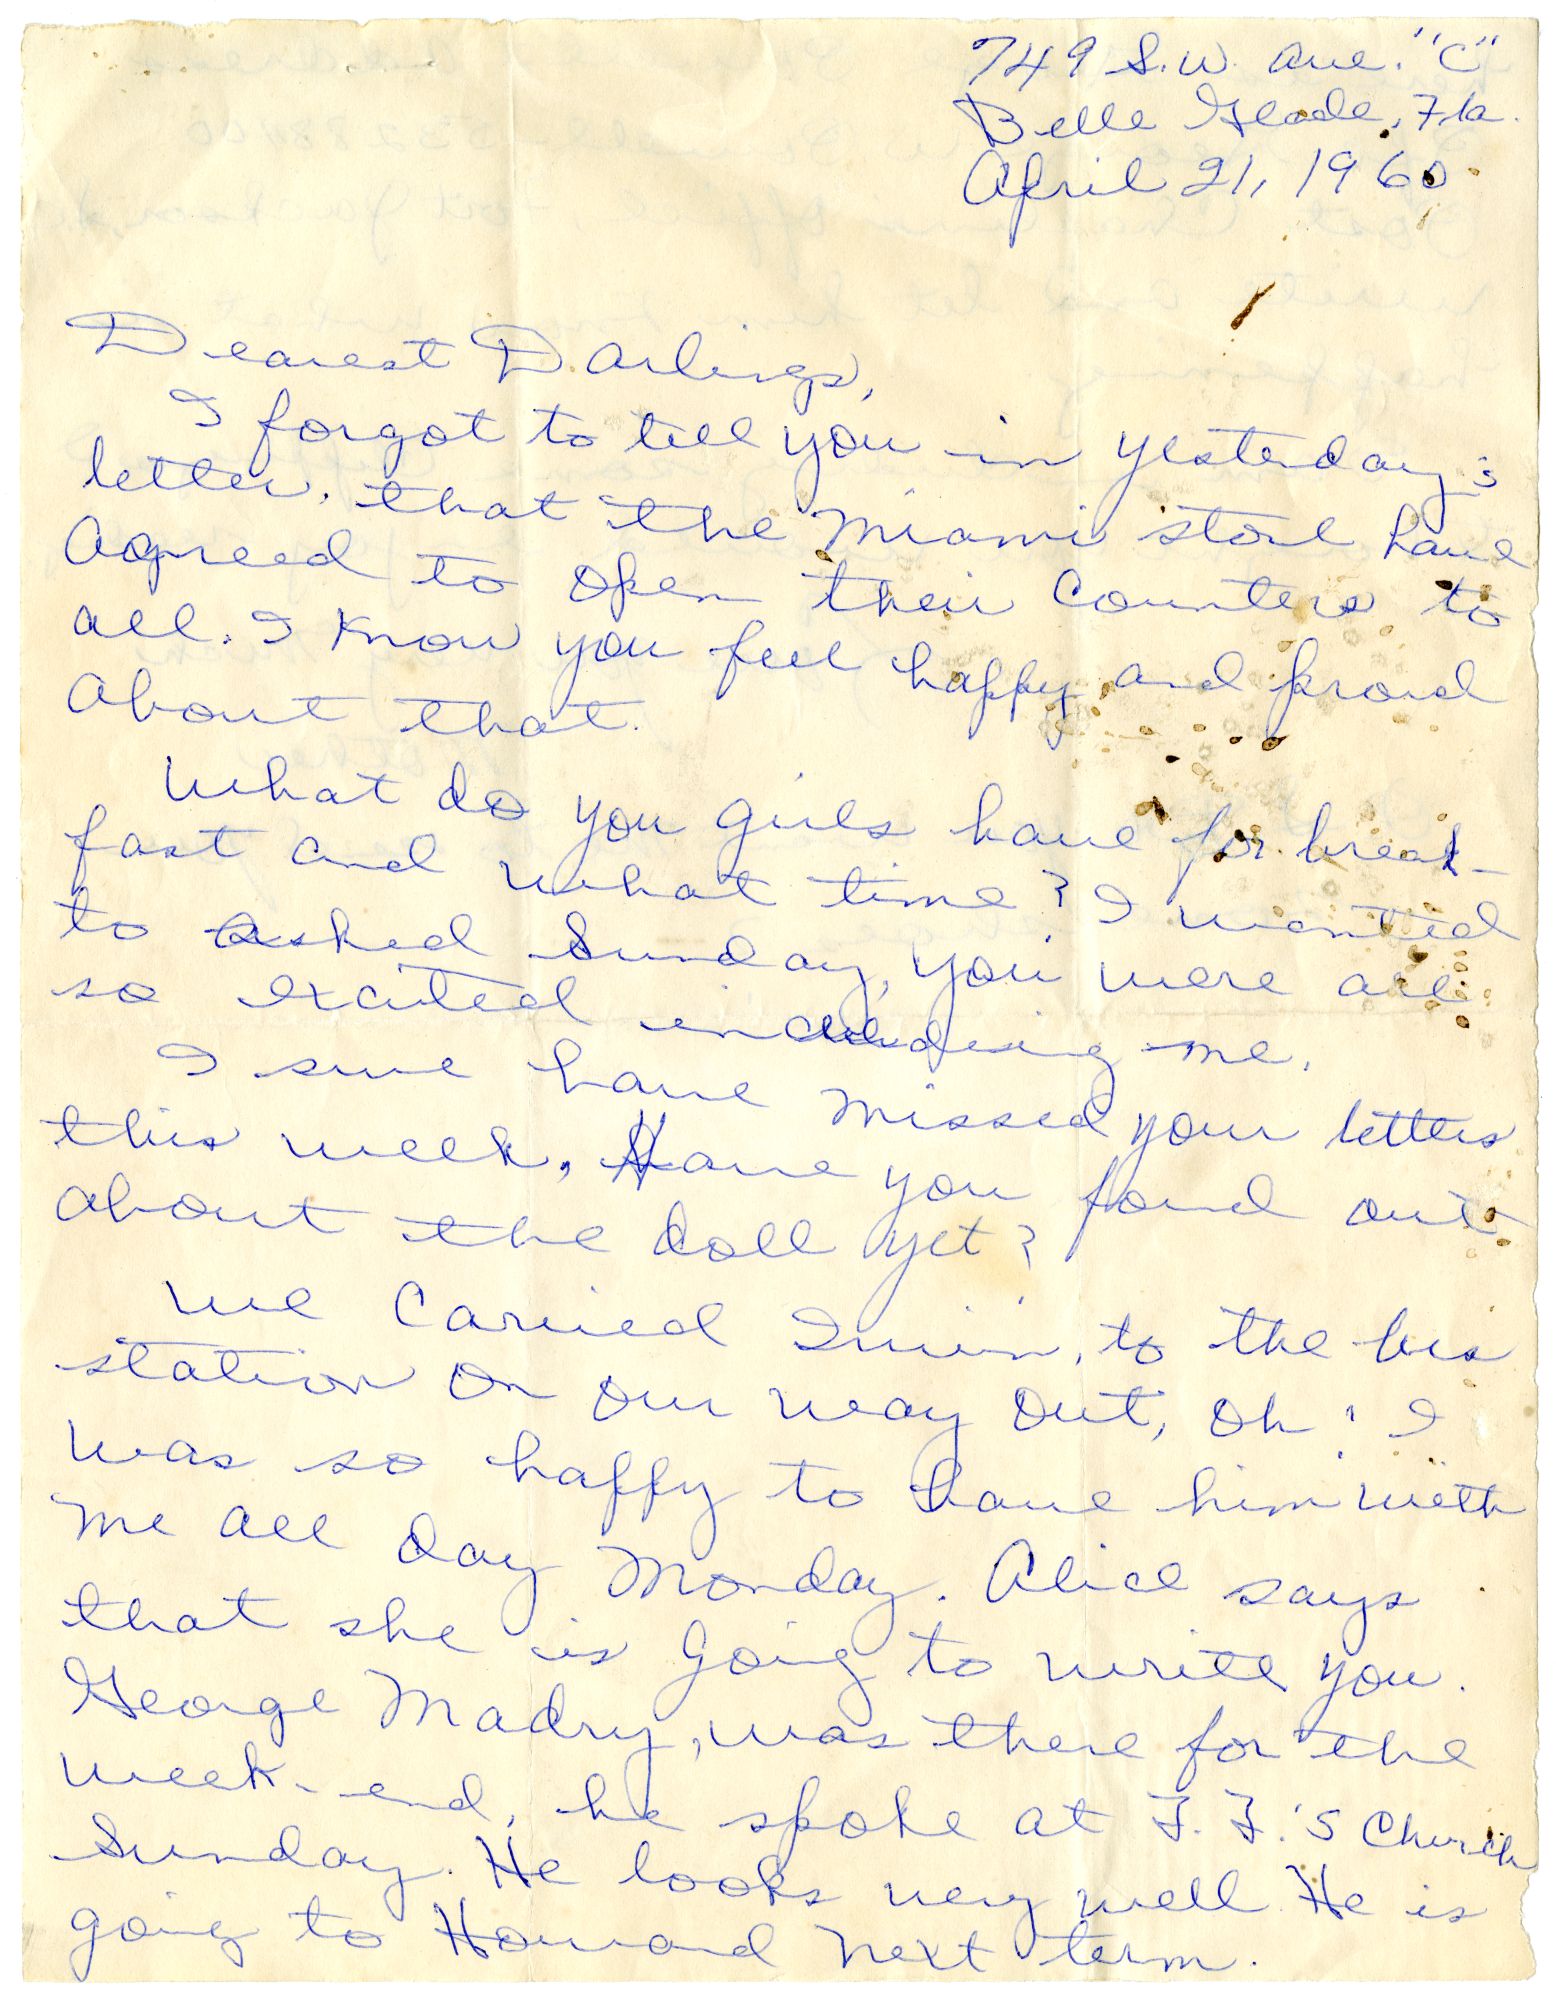 749 S.W. Ave. "C"
Belle Glade, Fla.
April 21, 1960
Dearest Darlings,
I forgot to tell you in yesterday's
letter, that the Miami store have
agreed to open their counters to
all. I know you feel happy and proud
about that.
What do you girls have for break-
fast and what time? I wanted
to asked Sunday, you were all
so excited including me.
I sure have missed your letters
this week, Have you found out
about the doll yet?
We carried Irvin, to the bus
station on our way out, oh! I
was so happy to have him with
me all day Monday. Alice says
that she is going to write you.
George Madry, was there for the
week-end, he spoke at F.F.'s Church
Sunday. He looks very well. He is
going to Howard next term.